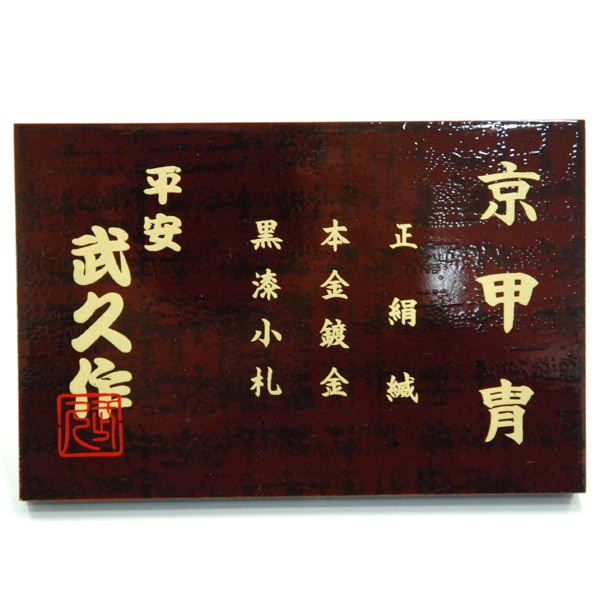 京甲冑
正絹縅
本金鍍金
黒漆小札
平安
武久作